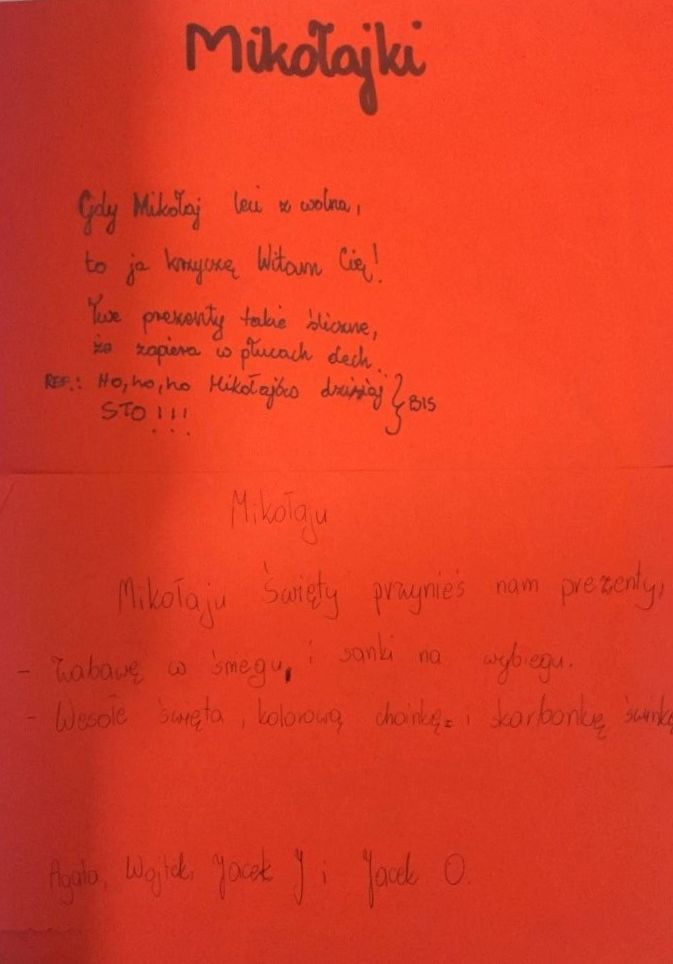 Mikołajki
Gdy Mikołaj leci z wolna,
to ja krzyczę Witam Cię!
Twe prezenty takie śliczne,
że zapiera w płucach dech.
REF.: Ho, ho, ho Mikołajów dzisiaj } BIS
STO!!!
Mikołaju
Mikołaju Święty przynieś nam prezenty,
- Zabawę w śniegu, i sanki na wybiegu.
- Wesołe święta, kolorową choinkę i skarbonkę świnkę
Agata, Wojtek, Jacek J i Jacek O.